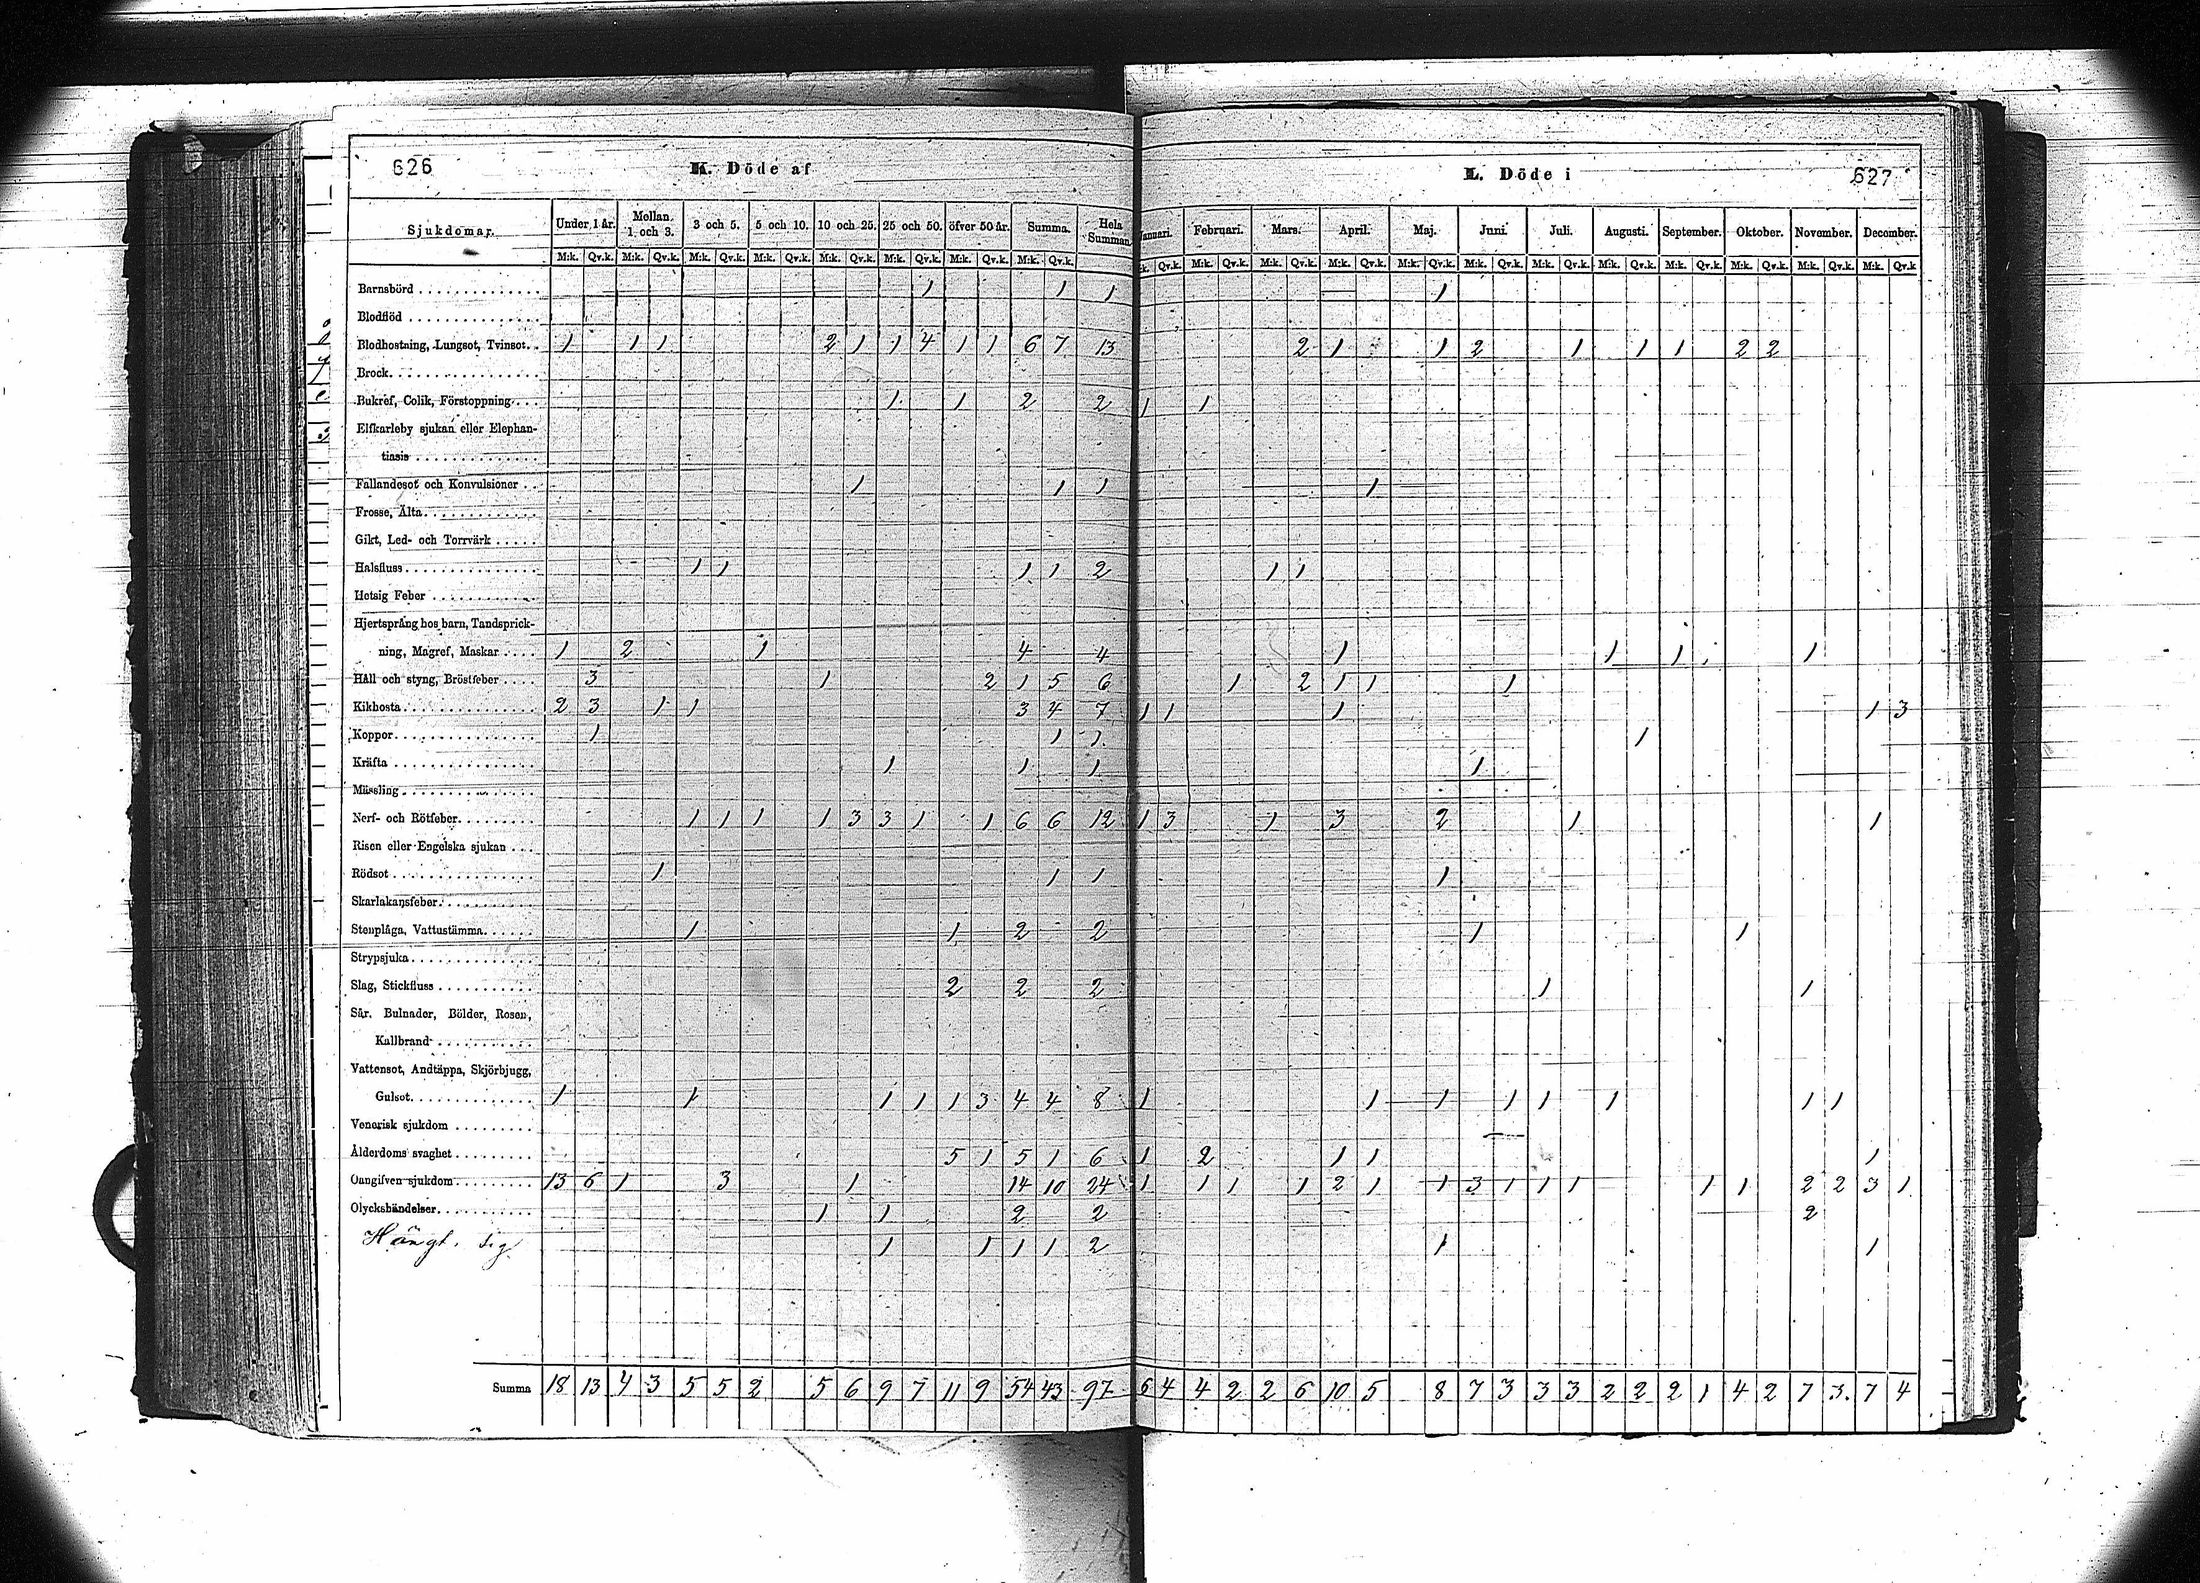 626
K. Döde af
Sjukdomar. Under 1 år. Mellan 1 och 3. 3 och 5. 5 och 10. 10 och 25. 25 och 50. öfver 50 år. Summa. Hela Summan
M:k. Qv.k. M:k. Qv.k. M:k. Qv.k. M:k. Qv.k. M:k. Qv.k. M:k. Qv.k. M:k. Qv.k. M:k. Qv.k.
Barnsbörd 1 1 1
Blodflöd
Blodhostning, Lungsot, Tvinsot 1 1 1 2 1 1 4 1 1 6 7 13
Brock
Bukref, Colik, Förstoppning 1 1 2 2
Elfkarleby sjukan eller Elephan-
tiasis
Fallandesot och Konvulsioner 1 1 1
Frosse, Älta
Gikt, Led- och Torrvärk
Halsfluss 1 1 1 1 2
Hetsig Feber
Hjertsprång hos barn, Tandsprick-
ning, Magref, Maskar 1 2 1 4 4
Håll och styng, Bröstfeber 3 1 2 1 5 6
Kikhosta 2 3 1 1 3 4 7
Koppor 1 1 1
Kräfta 1 1 1
Mässling
Nerf- och Rötfeber 1 1 1 1 3 3 1 1 6 6 12
Risen eller Engelska sjukan
Rödsot 1 1 1
Skarlakansfeber
Stenplåga, Vattustämma 1 1 2 2
Strypsjuka
Slag, Stickfluss 2 2 2
Sår, Bulnader, Bölder, Rosen,
Kallbrand
Vattensot, Andtäppa, Skjörbjugg,
Gulsot 1 1 1 1 1 3 4 4 8
Venerisk sjukdom
Ålderdoms svaghet 5 1 5 1 6
Oangifven sjukdom 13 6 1 3 1 14 10 24
Olyckshändelser 1 1 2 2
Hängt sig 1 1 1 1 2
Summa 18 13 4 3 5 5 2 5 6 9 7 11 9 54 43 97
L. Döde i
627
Januari. Februari. Mars. April. Maj. Juni. Juli. Augusti. September. Oktober. November. December.
:k. Qv.k. M:k. Qv.k. M:k. Qv.k. M:k. Qv.k. M:k. Qv.k. M:k. Qv.k. M:k. Qv.k. M:k. Qv.k. M:k. Qv.k. M:k. Qv.k. M:k. Qv.k. M:k. Qv.k
1
2 1 1 2 1 1 1 2 2
1 1
1
1 1
1 1 1 1
1 2 1 1 1
1 1 1 1 3
1
1
1 3 1 3 2 1 1
1
1 1
1 1
1 1 1 1 1 1 1 1
1 2 1 1 1
1 1 1 1 2 1 1 3 1 1 1 1 1 2 2 3 1
2
1 1
6 4 4 2 2 6 10 5 8 7 3 3 3 2 2 2 1 4 2 7 3. 7 4